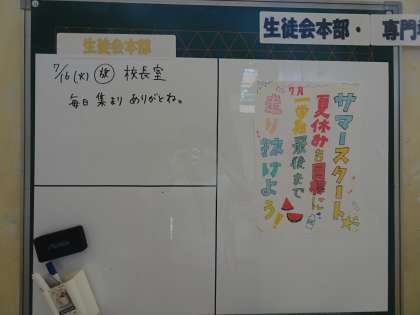 生徒会本部・専門
生徒会本部
7/16(火) 放 校長室
毎日集まりありがとね。
サマースタート
夏休みを目標に
7月
一学期最後まで
走り抜けよう！